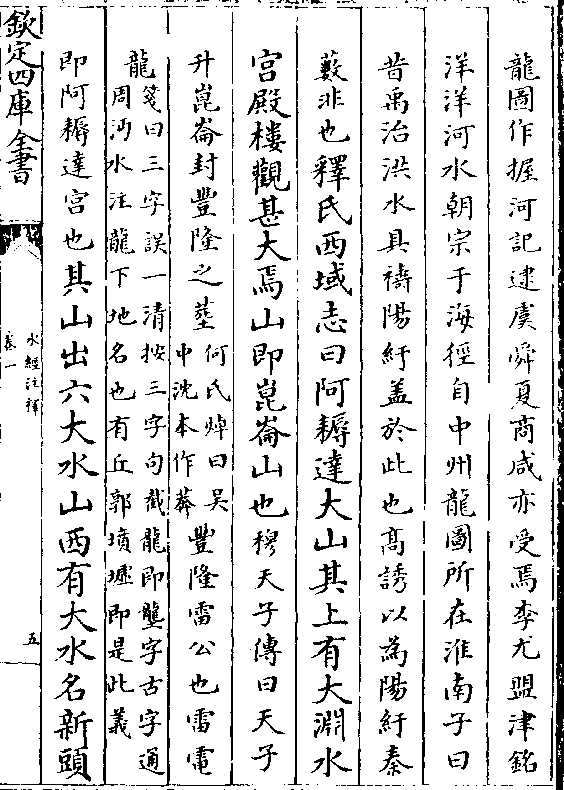 龍圖作握河記逮虞舜夏商咸亦受焉李尤盟津銘
洋洋河水朝宗于海徑自中州龍圖所在淮南子曰
昔禹治洪水具禱陽紆盖於此也髙誘以為陽紆秦
藪非也釋氏西域志曰阿耨達大山其上有大淵水
宫殿樓觀甚大焉山即崑崙山也穆天子傳曰天子
升崑崙封豐隆之塟何氏焯曰吳中沈本作葬豐隆雷公也雷電
龍箋曰三字誤一清按三字句截龍即壟字古字通周沔水注龍下地名也有丘郭墳墟即是此義
即阿耨達宫也其山出六大水山西有大水名新頭
欽定四庫全書
水經注釋
卷一
五